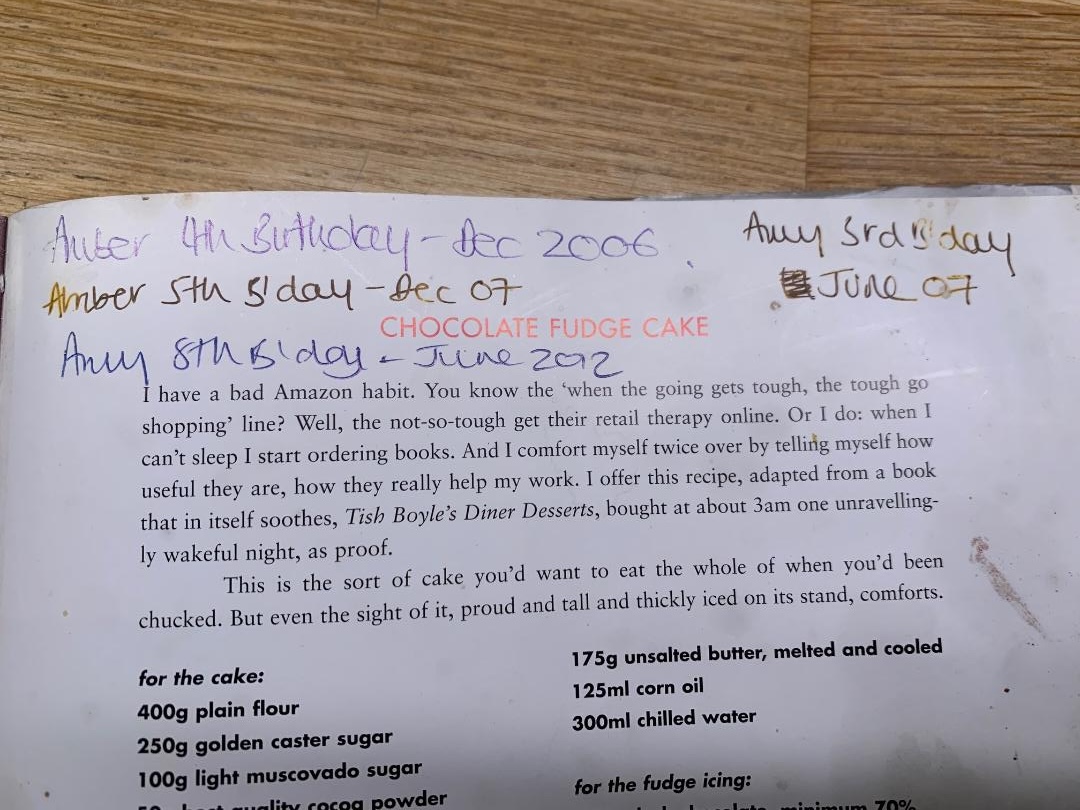 Amber 4th Birthday - Dec 2006
Amy 3rd B'day
Amber 5th B'day - Dec 07
June 07
CHOCOLATE FUDGE CAKE
Amy 8th B'day - June 2012
I have a bad Amazon habit. You know the ‘when the going gets tough, the tough go
shopping’ line? Well, the not-so-tough get their retail therapy online. Or I do: when I
can’t sleep I start ordering books. And I comfort myself twice over by telling myself how
useful they are, how they really help my work. I offer this recipe, adapted from a book
that in itself soothes, Tish Boyle’s Diner Desserts, bought at about 3am one unravelling-
ly wakeful night, as proof.
This is the sort of cake you’d want to eat the whole of when you’d been
chucked. But even the sight of it, proud and tall and thickly iced on its stand, comforts.
for the cake:
400g plain flour
250g golden caster sugar
100g light muscovado sugar
best quality cocoa powder
175g unsalted butter, melted and cooled
125ml corn oil
300ml chilled water
for the fudge icing:
minimum 70%